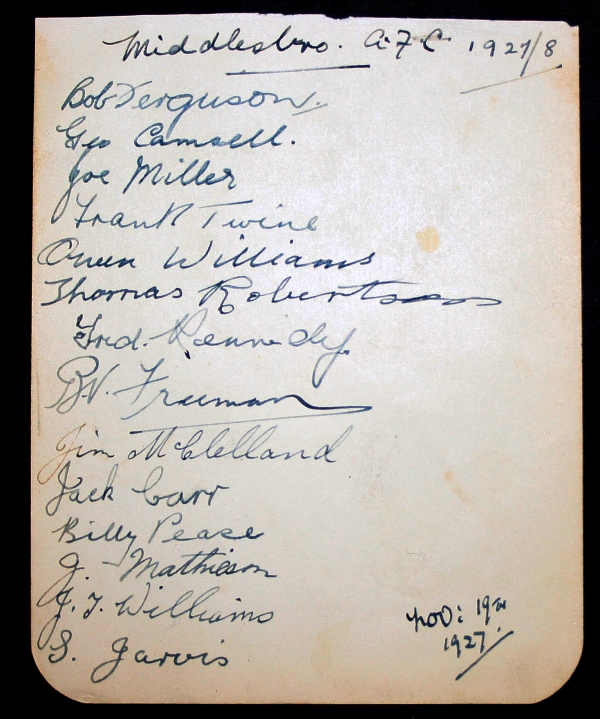 Middlesbro. A.F.C 1927/8
Bob Ferguson.
Geo Camsell.
Joe Miller
Frank Twine
Owen Williams
Thomas Robertson
Fred. Kennedy
R.V. Freeman
Jim McClelland
Jack Carr
Billy Pease
J. Mathieson
J. J. Williams
S. Jarvis
Nov: 19th
1927.